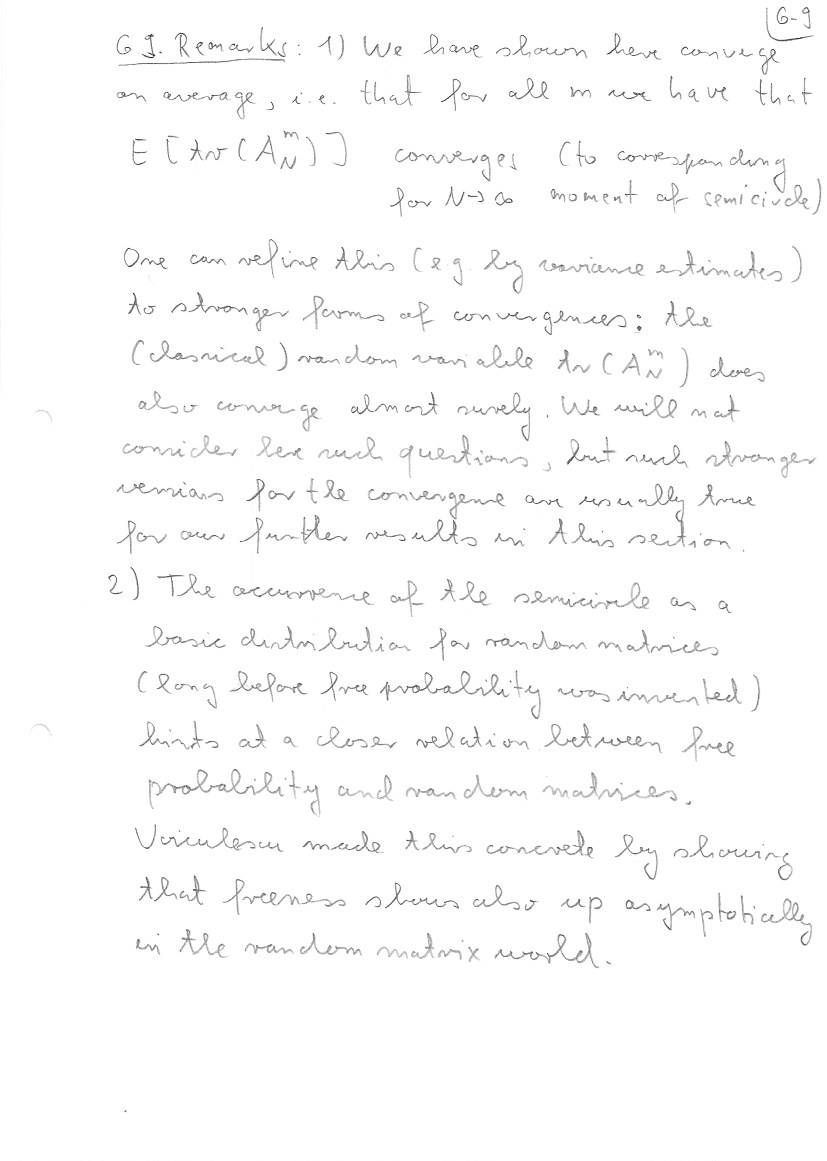 6-9
6.9. Remarks: 1) We have shown here converge
on average, i.e. that for all m we have that
E [tr (A_N^m)] converges (to corresponding
for N→∞ moment of semicircle)
One can refine this (e.g. by variance estimates)
to stronger forms of convergences: the
(classical) random variable tr (A_N^m) does
also converge almost surely. We will not
consider here such questions, but such stronger
versions for the convergence are usually true
for our further results in this section.
2) The occurrence of the semicircle as a
basic distribution for random matrices
(long before free probability was invented)
hints at a closer relation between free
probability and random matrices.
Voiculescu made this concrete by showing
that freeness shows also up asymptotically
in the random matrix world.